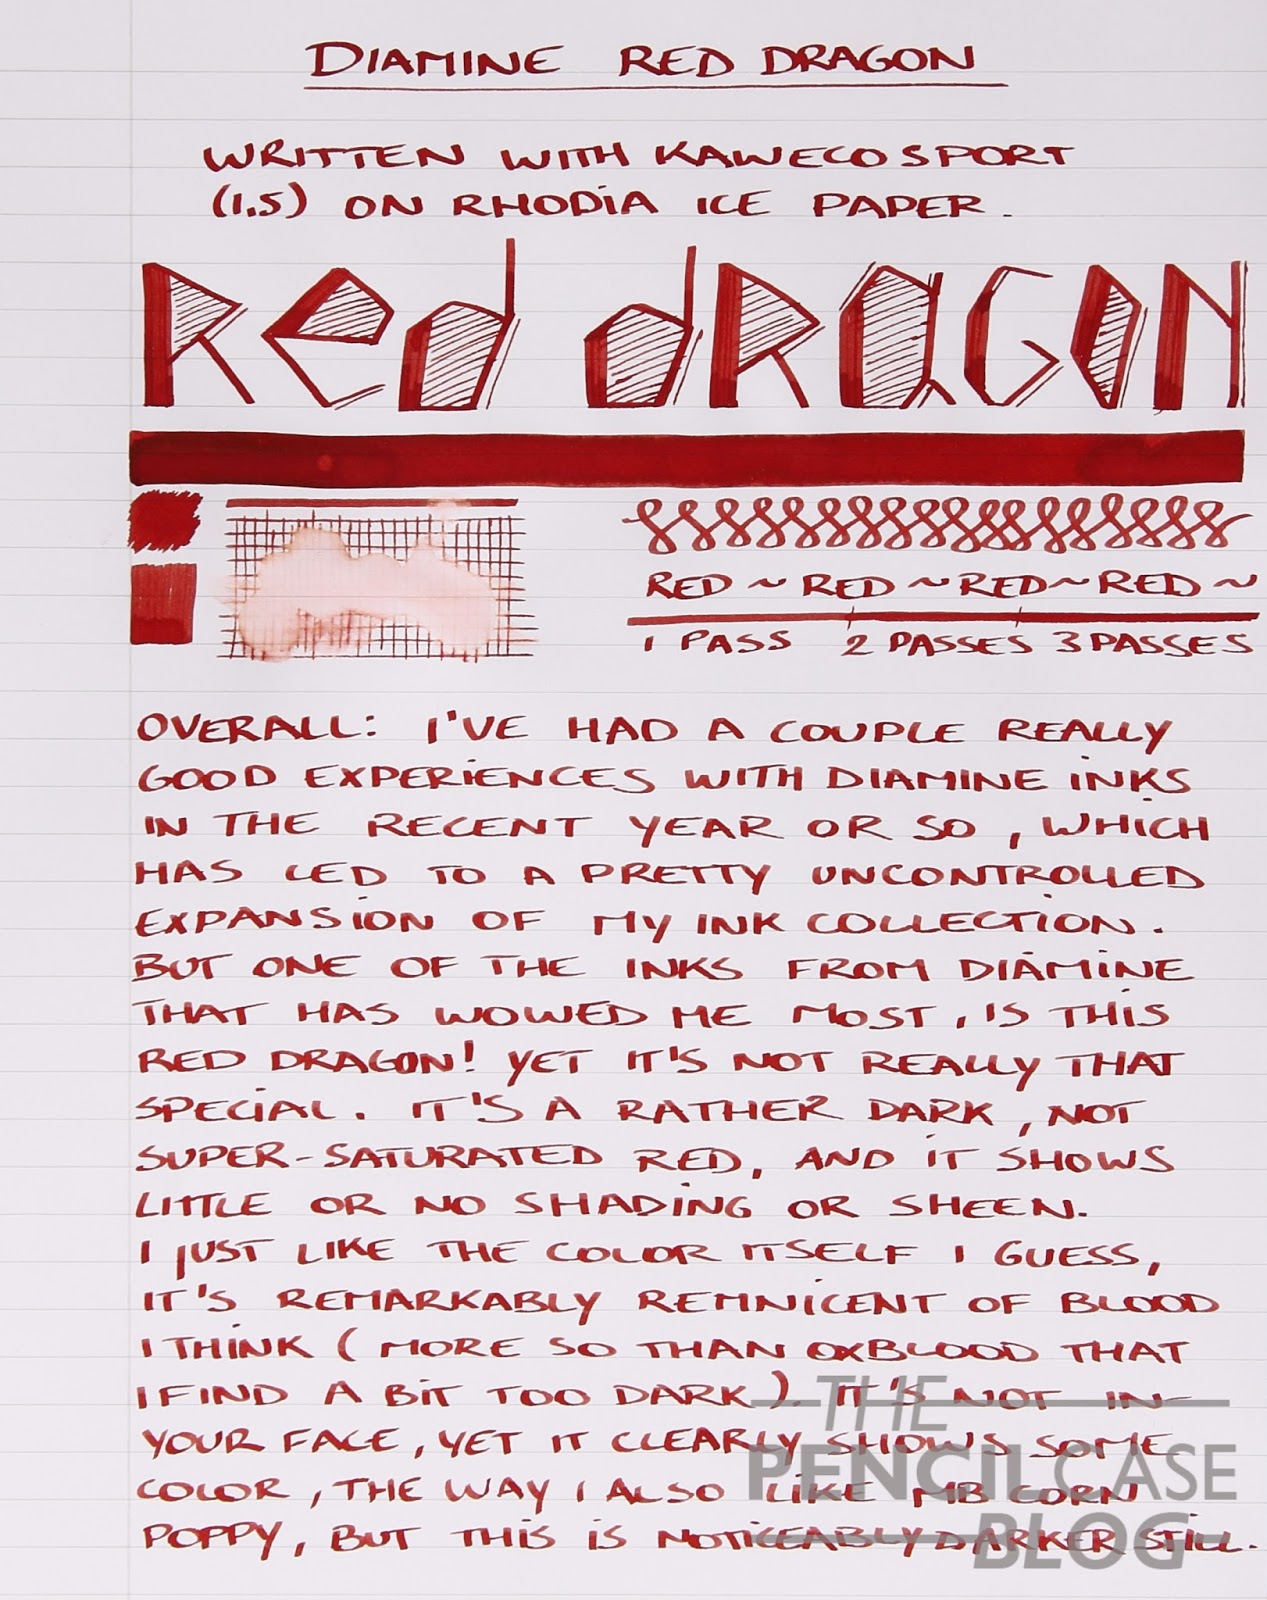 DIAMINE RED DRAGON
WRITTEN WITH KAWECO SPORT
(1.5) ON RHODIA ICE PAPER.
Red dRAGON
RED ~ RED ~ RED ~ RED ~
1 PASS 2 PASSES 3 PASSES
OVERALL: I'VE HAD A COUPLE REALLY
GOOD EXPERIENCES WITH DIAMINE INKS
IN THE RECENT YEAR OR SO, WHICH
HAS LED TO A PRETTY UNCONTROLLED
EXPANSION OF MY INK COLLECTION.
BUT ONE OF THE INKS FROM DIAMINE
THAT HAS WOWED ME MOST, IS THIS
RED DRAGON! YET IT'S NOT REALLY THAT
SPECIAL. IT'S A RATHER DARK, NOT
SUPER-SATURATED RED, AND IT SHOWS
LITTLE OR NO SHADING OR SHEEN.
I JUST LIKE THE COLOR ITSELF I GUESS,
IT'S REMARKABLY REMNICENT OF BLOOD
I THINK (MORE SO THAN OXBLOOD THAT
I FIND A BIT TOO DARK). IT'S NOT IN
YOUR FACE, YET IT CLEARLY SHOWS SOME
COLOR, THE WAY I ALSO LIKE MB CORN
POPPY, BUT THIS IS NOTICEABLY DARKER STILL.
THE
PENCILCASE
BLOG